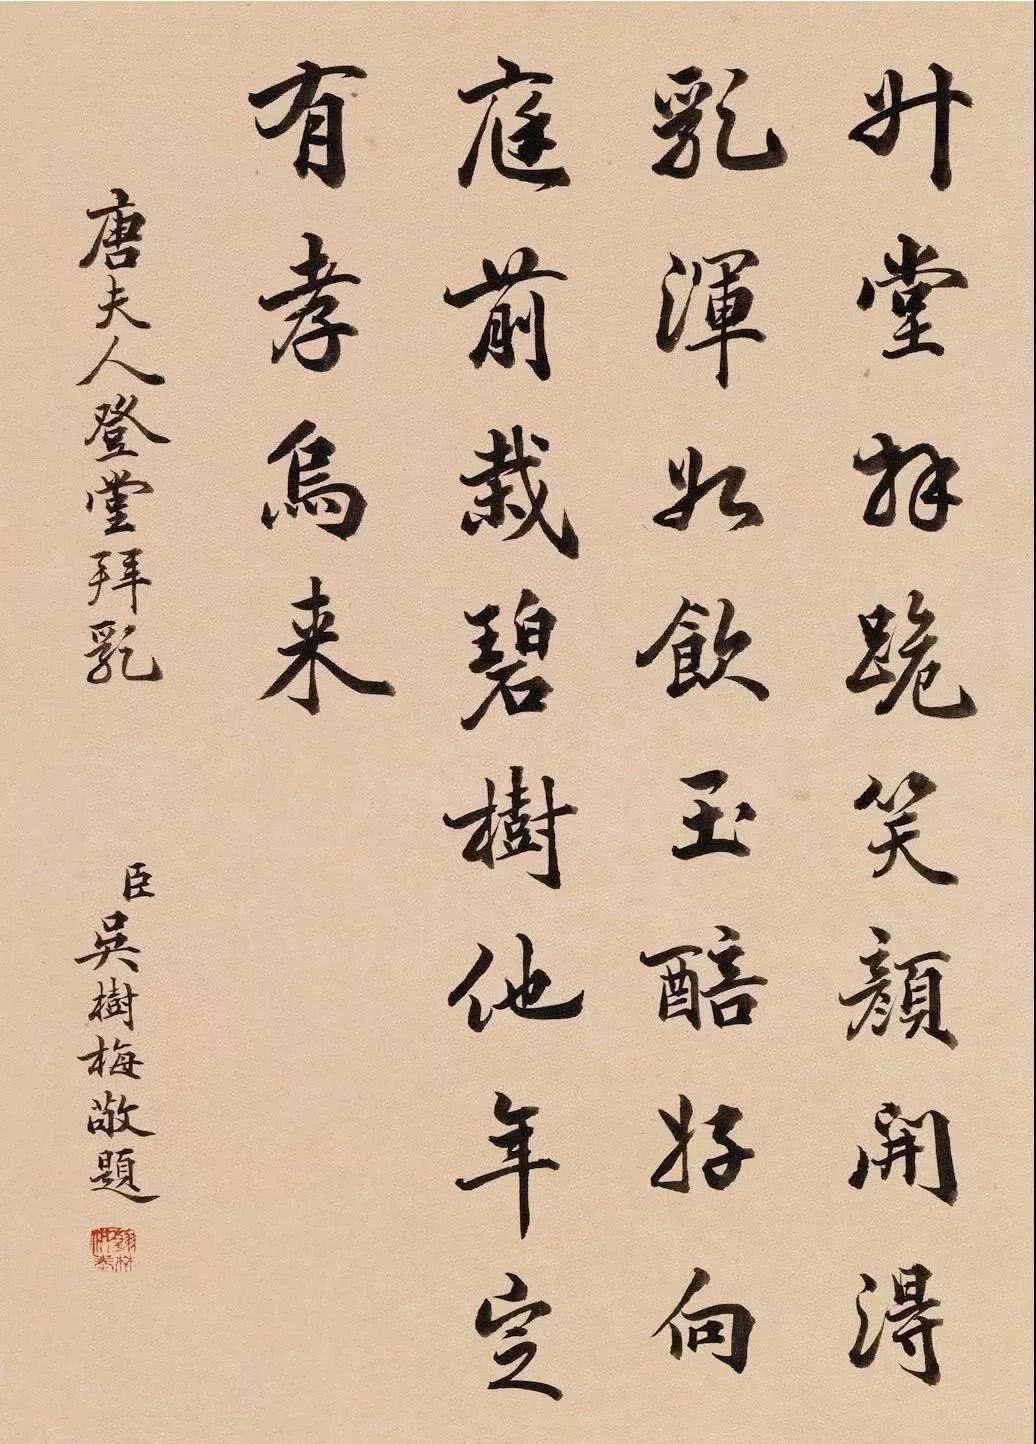 升堂拜跪笑顔開得
乳渾如飲玉醅好向
庭前栽碧樹他年定
有孝烏来
唐夫人登堂拜乳
臣吳樹梅敬題